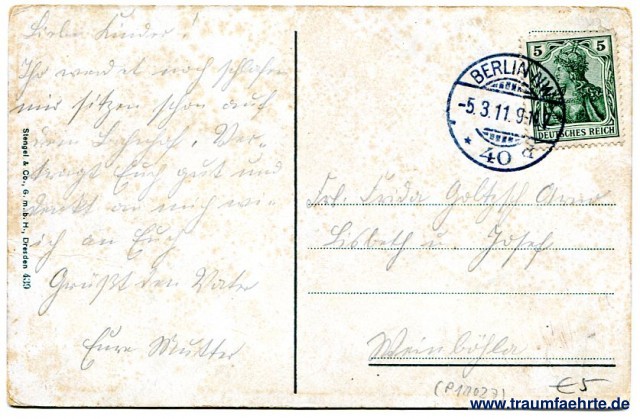 Liebe Kinder!
Ihr werdet noch schlafen
wir sitzen schon auf
dem Bahnhof. Ver-
tragt Euch gut und
denkt an mich wie
ich an Euch
Grüßt den Vater
Eure Mutter
Stengel & Co., G. m. b. H., Dresden
BERLIN NW
-5.3.11. 9-10
* 40 a
5 5
DEUTSCHES REICH
Frl. Frida Goltzsch
Lisbeth u. Josef
Weinböhla
€5
www.traumfaehrte.de